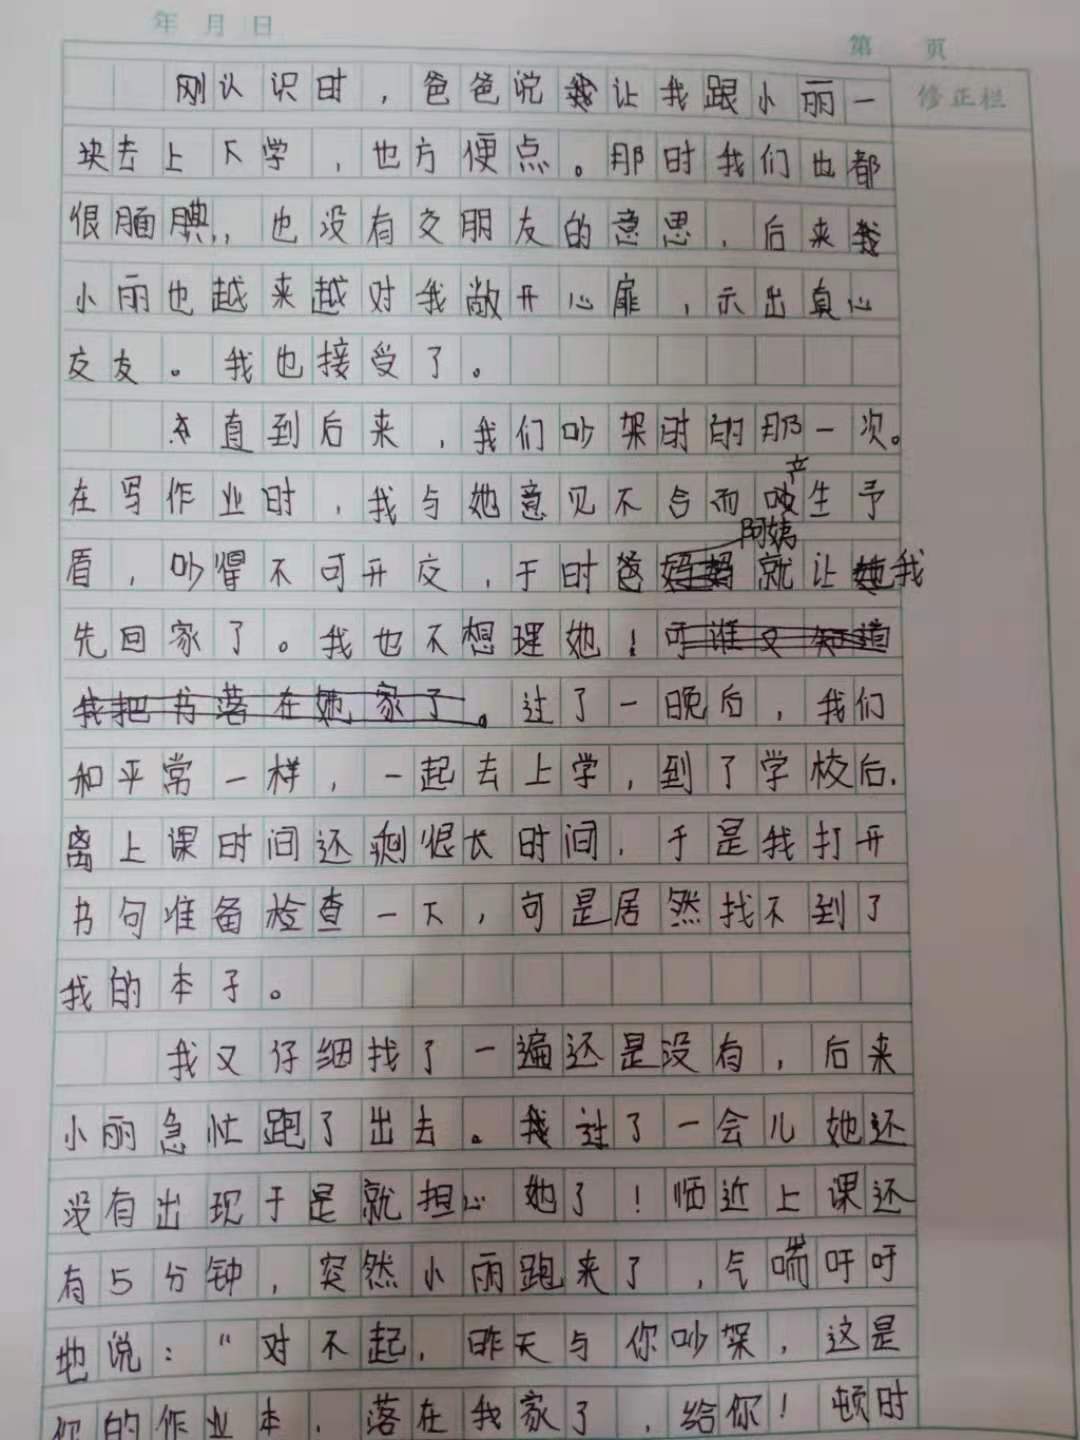 年 月 日
第 页
修正栏
刚认识时，爸爸说让我跟小丽一
块去上下学，也方便点。那时我们也都
很腼腆，也没有交朋友的意思，后来
小丽也越来越对我敞开心扉，示出真心
交友。我也接受了。
直到后来，我们吵架时的那一次。
在写作业时，我与她意见不合而产生予
盾，吵得不可开交，于时爸阿姨就让我
先回家了。我也不想理她！可谁又知道
我把书落在她家了。过了一晚后，我们
和平常一样，一起去上学，到了学校后，
离上课时间还剩很长时间，于是我打开
书句准备检查一下，可是居然找不到了
我的本子。
我又仔细找了一遍还是没有，后来
小丽急忙跑了出去。过了一会儿她还
没有出现于是就担心她了！临近上课还
有5分钟，突然小丽跑来了，气喘吁吁
地说：“对不起，昨天与你吵架，这是
你的作业本，落在我家了，给你！顿时